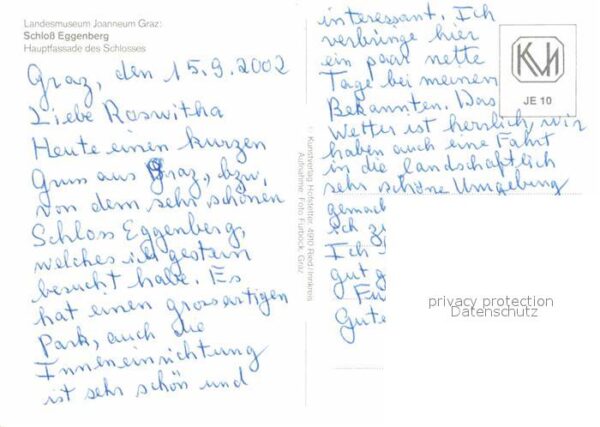 Landesmuseum Joanneum Graz:
Schloß Eggenberg
Hauptfassade des Schlosses
Graz, den 15.9.2002
Liebe Roswitha
Heute einen kurzen
Gruss aus Graz, bzw,
von dem sehr schönen
Schloss Eggenberg,
welches ich gestern
besucht habe. Es
hat einen grossartigen
Park, auch die
Inneneinrichtung
ist sehr schön und
interessant. Ich
verbringe hier
ein paar nette
Tage bei meinen
Bekannten. Das
Wetter ist herrlich, wir
haben auch eine Fahrt
in die landschaftlich
sehr schöne Umgebung
gemach
ich
Ich
gut
Für
Gute
© Kunstverlag Hofstetter, 4910 Ried/Innkreis
Aufnahme: Foto Fürböck, Graz
KVH
JE 10
privacy protection
Datenschutz